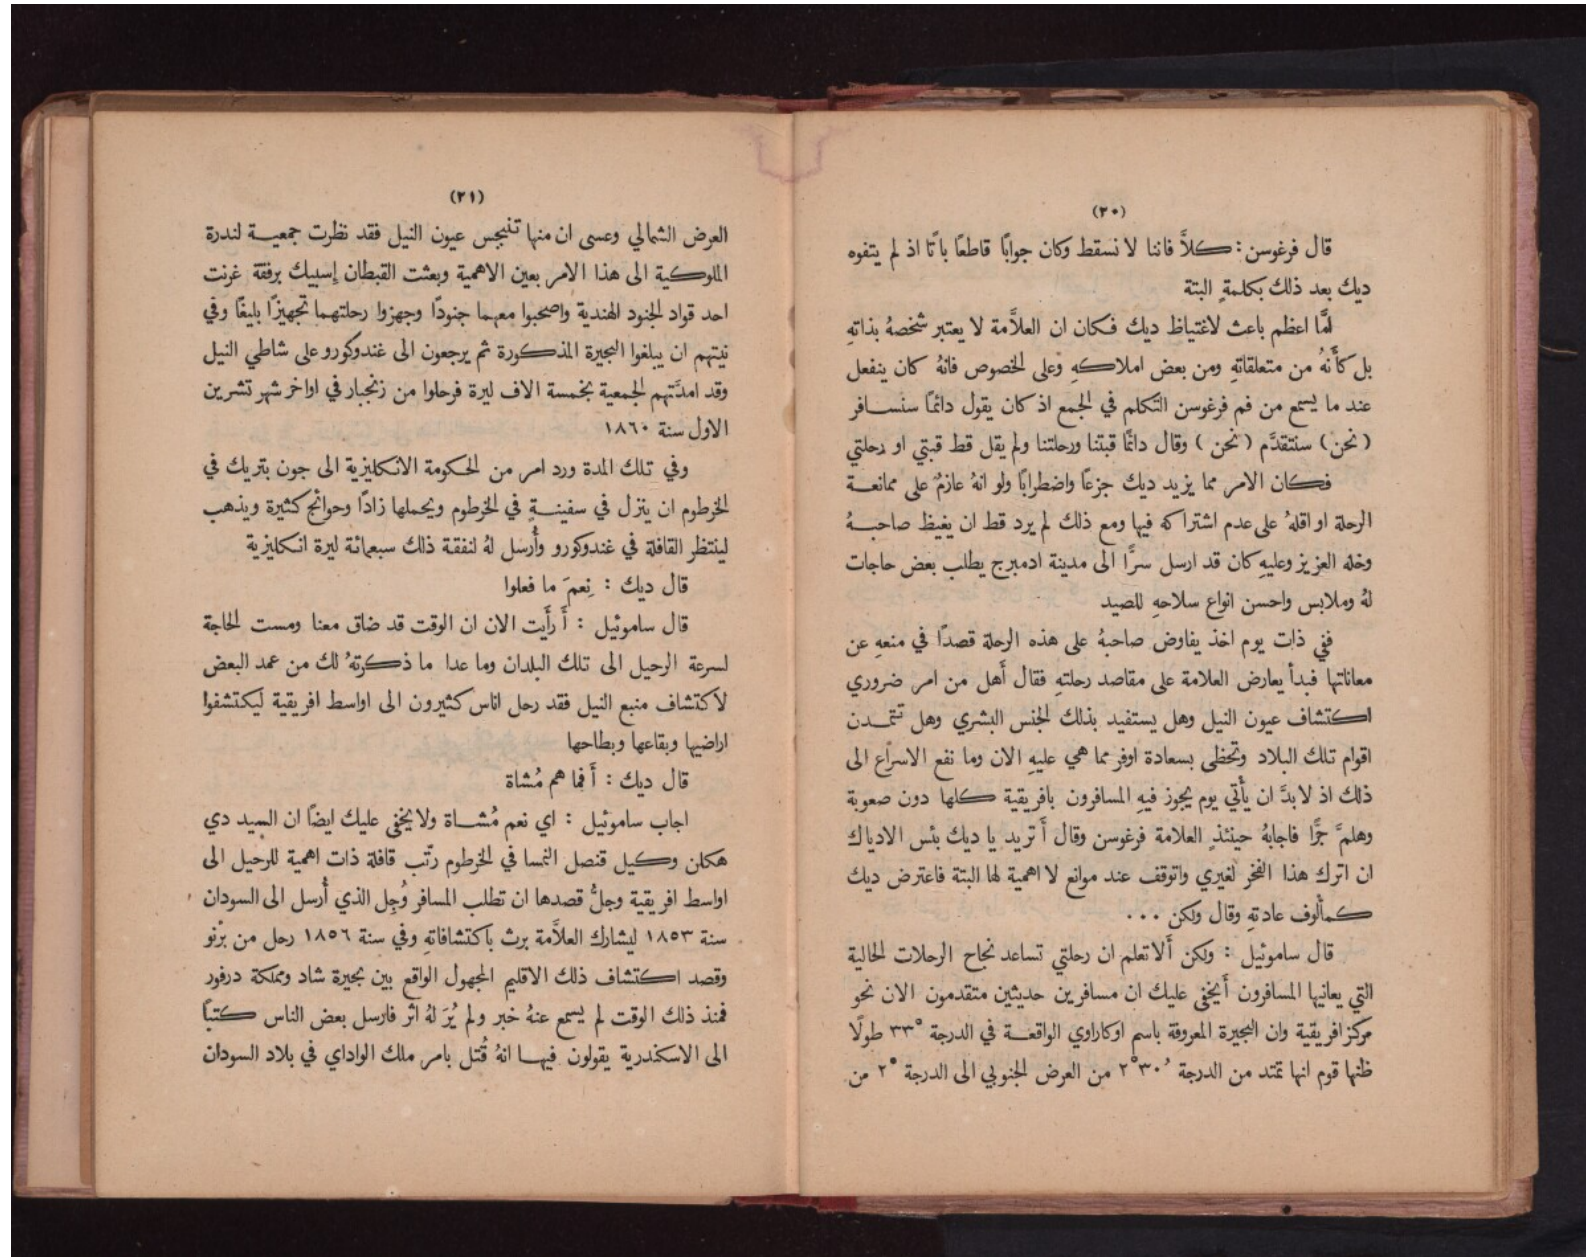 (٢٠)
قال فرغوسن: كلاَّ فاننا لا نسقط وكان جوابًا قاطعًا باتًا اذ لم يتفوه
ديك بعد ذلك بكلمةٍ البتة
امَّا اعظم باعث لاغتياظ ديك فكان ان العلاَّمة لا يعتبر شخصهُ بذاتهِ
بل كأَنهُ من متعلقاتهِ ومن بعض املاكهِ وعلى الخصوص فانهُ كان ينفعل
عند ما يسمع من فم فرغوسن التكلم في الجمع اذ كان يقول دائمًا سنسافر
(نحن) سنتقدَّم (نحن) وقال دائمًا قبتنا ورحلتنا ولم يقل قط قبتي او رحلتي
فكان الامر مما يزيد ديك جزعًا واضطرابًا ولو انهُ عازمٌ على ممانعة
الرحلة او اقلهُ على عدم اشتراكه فيها ومع ذلك لم يرد قط ان يغيظ صاحبهُ
وخله العزيز وعليهِ كان قد ارسل سرًّا الى مدينة ادمبرج يطلب بعض حاجات
لهُ وملابس واحسن انواع سلاحهِ للصيد
ففي ذات يوم اخذ يفاوض صاحبهُ على هذه الرحلة قصدًا في منعهِ عن
معاناتها فبدأ يعارض العلامة على مقاصد رحلتهِ فقال أَهل من امر ضروري
اكتشاف عيون النيل وهل يستفيد بذلك الجنس البشري وهل تتمدن
اقوام تلك البلاد وتحظى بسعادة اوفر مما هي عليهِ الان وما نفع الاسراع الى
ذلك اذ لا بدَّ ان يأتي يوم يجوز فيهِ المسافرون بافريقية كلها دون صعوبة
وهلمَّ جرًّا فاجابهُ حينئذٍ العلامة فرغوسن وقال أَتريد يا ديك بئس الادياك
ان اترك هذا الفخر لغيري واتوقف عند موانع لا اهمية لها البتة فاعترض ديك
كمألوف عادتهِ وقال ولكن ...
قال ساموئيل : ولكن أَلا تعلم ان رحلتي تساعد نجاح الرحلات الحالية
التي يعانيها المسافرون أَيخفى عليك ان مسافرين حديثين متقدمون الان نحو
مركز افريقية وان البحيرة المعروفة باسم اوكاراوي الواقعة في الدرجة °٣٣ طولًا
ظنها قوم انها تمتد من الدرجة ٢°٣٠′ من العرض الجنوبي الى الدرجة °٢ من
(٢١)
العرض الشمالي وعسى ان منها تنبجس عيون النيل فقد نظرت جمعية لندرة
الملوكية الى هذا الامر بعين الاهمية وبعثت القبطان إسبيك برفقة غرنت
احد قواد الجنود الهندية واصحبوا معهما جنودًا وجهزوا رحلتهما تجهيزًا بليغًا وفي
نيتهم ان يبلغوا البحيرة المذكورة ثم يرجعون الى غندوكورو على شاطي النيل
وقد امدَّتهم الجمعية بخمسة الاف ليرة فرحلوا من زنجبار في اواخر شهر تشرين
الاول سنة ١٨٦٠
وفي تلك المدة ورد امر من الحكومة الانكليزية الى جون بتريك في
الخرطوم ان ينزل في سفينةٍ في الخرطوم ويحملها زادًا وحوائج كثيرة ويذهب
لينتظر القافلة في غندوكورو وأُرسل لهُ لنفقة ذلك سبعمائة ليرة انكليزية
قال ديك : نِعمَ ما فعلوا
قال ساموئيل : أَرأَيت الان ان الوقت قد ضاق معنا ومست الحاجة
لسرعة الرحيل الى تلك البلدان وما عدا ما ذكرتهُ لك من عمد البعض
لاكتشاف منبع النيل فقد رحل اناس كثيرون الى اواسط افريقية ليكتشفوا
اراضيها وبقاعها وبطاحها
قال ديك : أَفما هم مُشاة
اجاب ساموئيل : اي نعم مُشاة ولا يخفى عليك ايضًا ان السيد دي
هكلن وكيل قنصل النمسا في الخرطوم رتّب قافلة ذات اهمية للرحيل الى
اواسط افريقية وجلُّ قصدها ان تطلب المسافر وُجِل الذي أُرسل الى السودان
سنة ١٨٥٣ ليشارك العلاَّمة برث باكتشافاتهِ وفي سنة ١٨٥٦ رحل من برْنو
وقصد اكتشاف ذلك الاقليم المجهول الواقع بين بحيرة شاد ومملكة درفور
فمنذ ذلك الوقت لم يسمع عنهُ خبر ولم يُرَ لهُ اثر فارسل بعض الناس كتبًا
الى الاسكندرية يقولون فيها انهُ قُتل بامر ملك الواداي في بلاد السودان